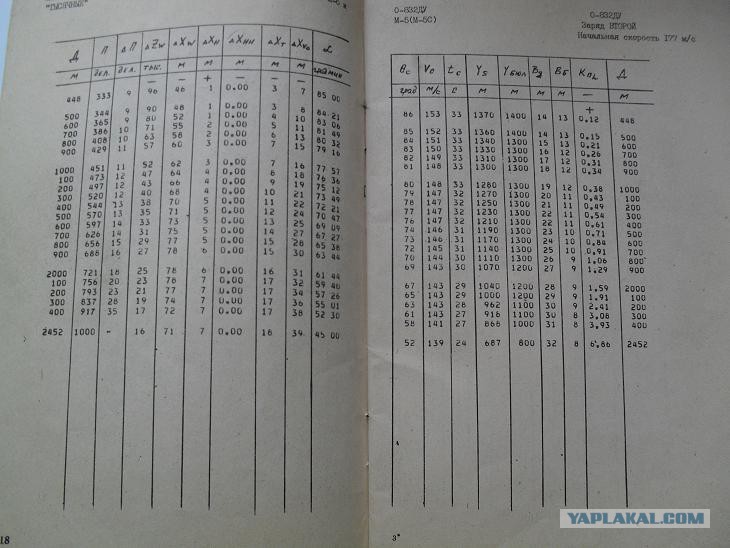 "ТЫСЯЧНЫХ"
Д П ΔП ΔZw ΔXw ΔXн ΔXнн ΔXт ΔXv₀ α
м дел. дел. тыс. м м м м м град мин
— — + — — —
448 333 9 96 46 1 0.00 3 7 85 00
500 344 9 90 48 1 0.00 3 8 84 21
600 365 9 80 52 1 0.00 4 10 83 06
700 386 10 71 55 2 0.00 5 11 81 49
800 408 10 63 58 2 0.00 6 13 80 32
900 429 11 57 60 3 0.00 7 15 79 16
1000 451 11 52 62 3 0.00 7 16 77 57
100 473 12 47 64 4 0.00 8 18 76 36
200 497 12 43 66 4 0.00 9 19 75 12
300 520 12 40 68 4 0.00 10 21 73 49
400 544 13 38 70 5 0.00 11 22 72 21
500 570 13 35 71 5 0.00 12 24 70 47
600 597 14 33 73 5 0.00 13 25 69 09
700 626 14 31 75 5 0.00 14 27 67 27
800 656 15 29 77 5 0.00 15 28 65 38
900 688 16 27 78 6 0.00 15 30 63 44
2000 721 18 25 78 6 0.00 16 31 61 44
100 756 20 23 78 7 0.00 17 32 59 40
200 793 23 21 77 7 0.00 17 34 57 26
300 837 28 19 74 7 0.00 17 36 55 01
400 917 35 17 72 7 0.00 17 38 52 30
2452 1000 - 16 71 7 0.00 18 39 45 00
18
О-832ДУ
М-5(М-5С)
О-832ДУ
Заряд ВТОРОЙ
Начальная скорость 177 м/с
Θc Vc tc Ys Yбюл Вд Вб Кп Д
град м/с с м м м м — м
+
86 153 33 1370 1400 14 13 0.12 448
85 152 33 1360 1400 14 13 0.15 500
84 151 33 1340 1300 15 13 0.21 600
83 150 33 1330 1300 16 12 0.26 700
82 149 33 1310 1300 17 12 0.31 800
81 148 33 1300 1300 18 12 0.34 900
80 148 33 1280 1300 19 12 0.38 1000
79 147 32 1270 1300 20 11 0.43 100
78 147 32 1250 1300 21 11 0.49 200
77 147 32 1230 1300 22 11 0.54 300
76 147 32 1210 1300 22 11 0.61 400
74 146 31 1190 1300 23 10 0.71 500
73 146 31 1170 1300 24 10 0.84 600
72 145 31 1140 1300 25 10 0.91 700
70 144 30 1110 1300 26 9 1.06 800
69 143 30 1070 1200 27 9 1.29 900
67 143 29 1040 1200 28 9 1.59 2000
65 143 29 1000 1200 29 9 1.91 100
63 143 28 962 1100 30 9 2.41 200
61 143 27 916 1100 30 8 3.08 300
58 141 27 868 1000 31 8 3.93 400
52 139 24 687 800 32 8 6.86 2452
3*
YAPLAKAL.COM